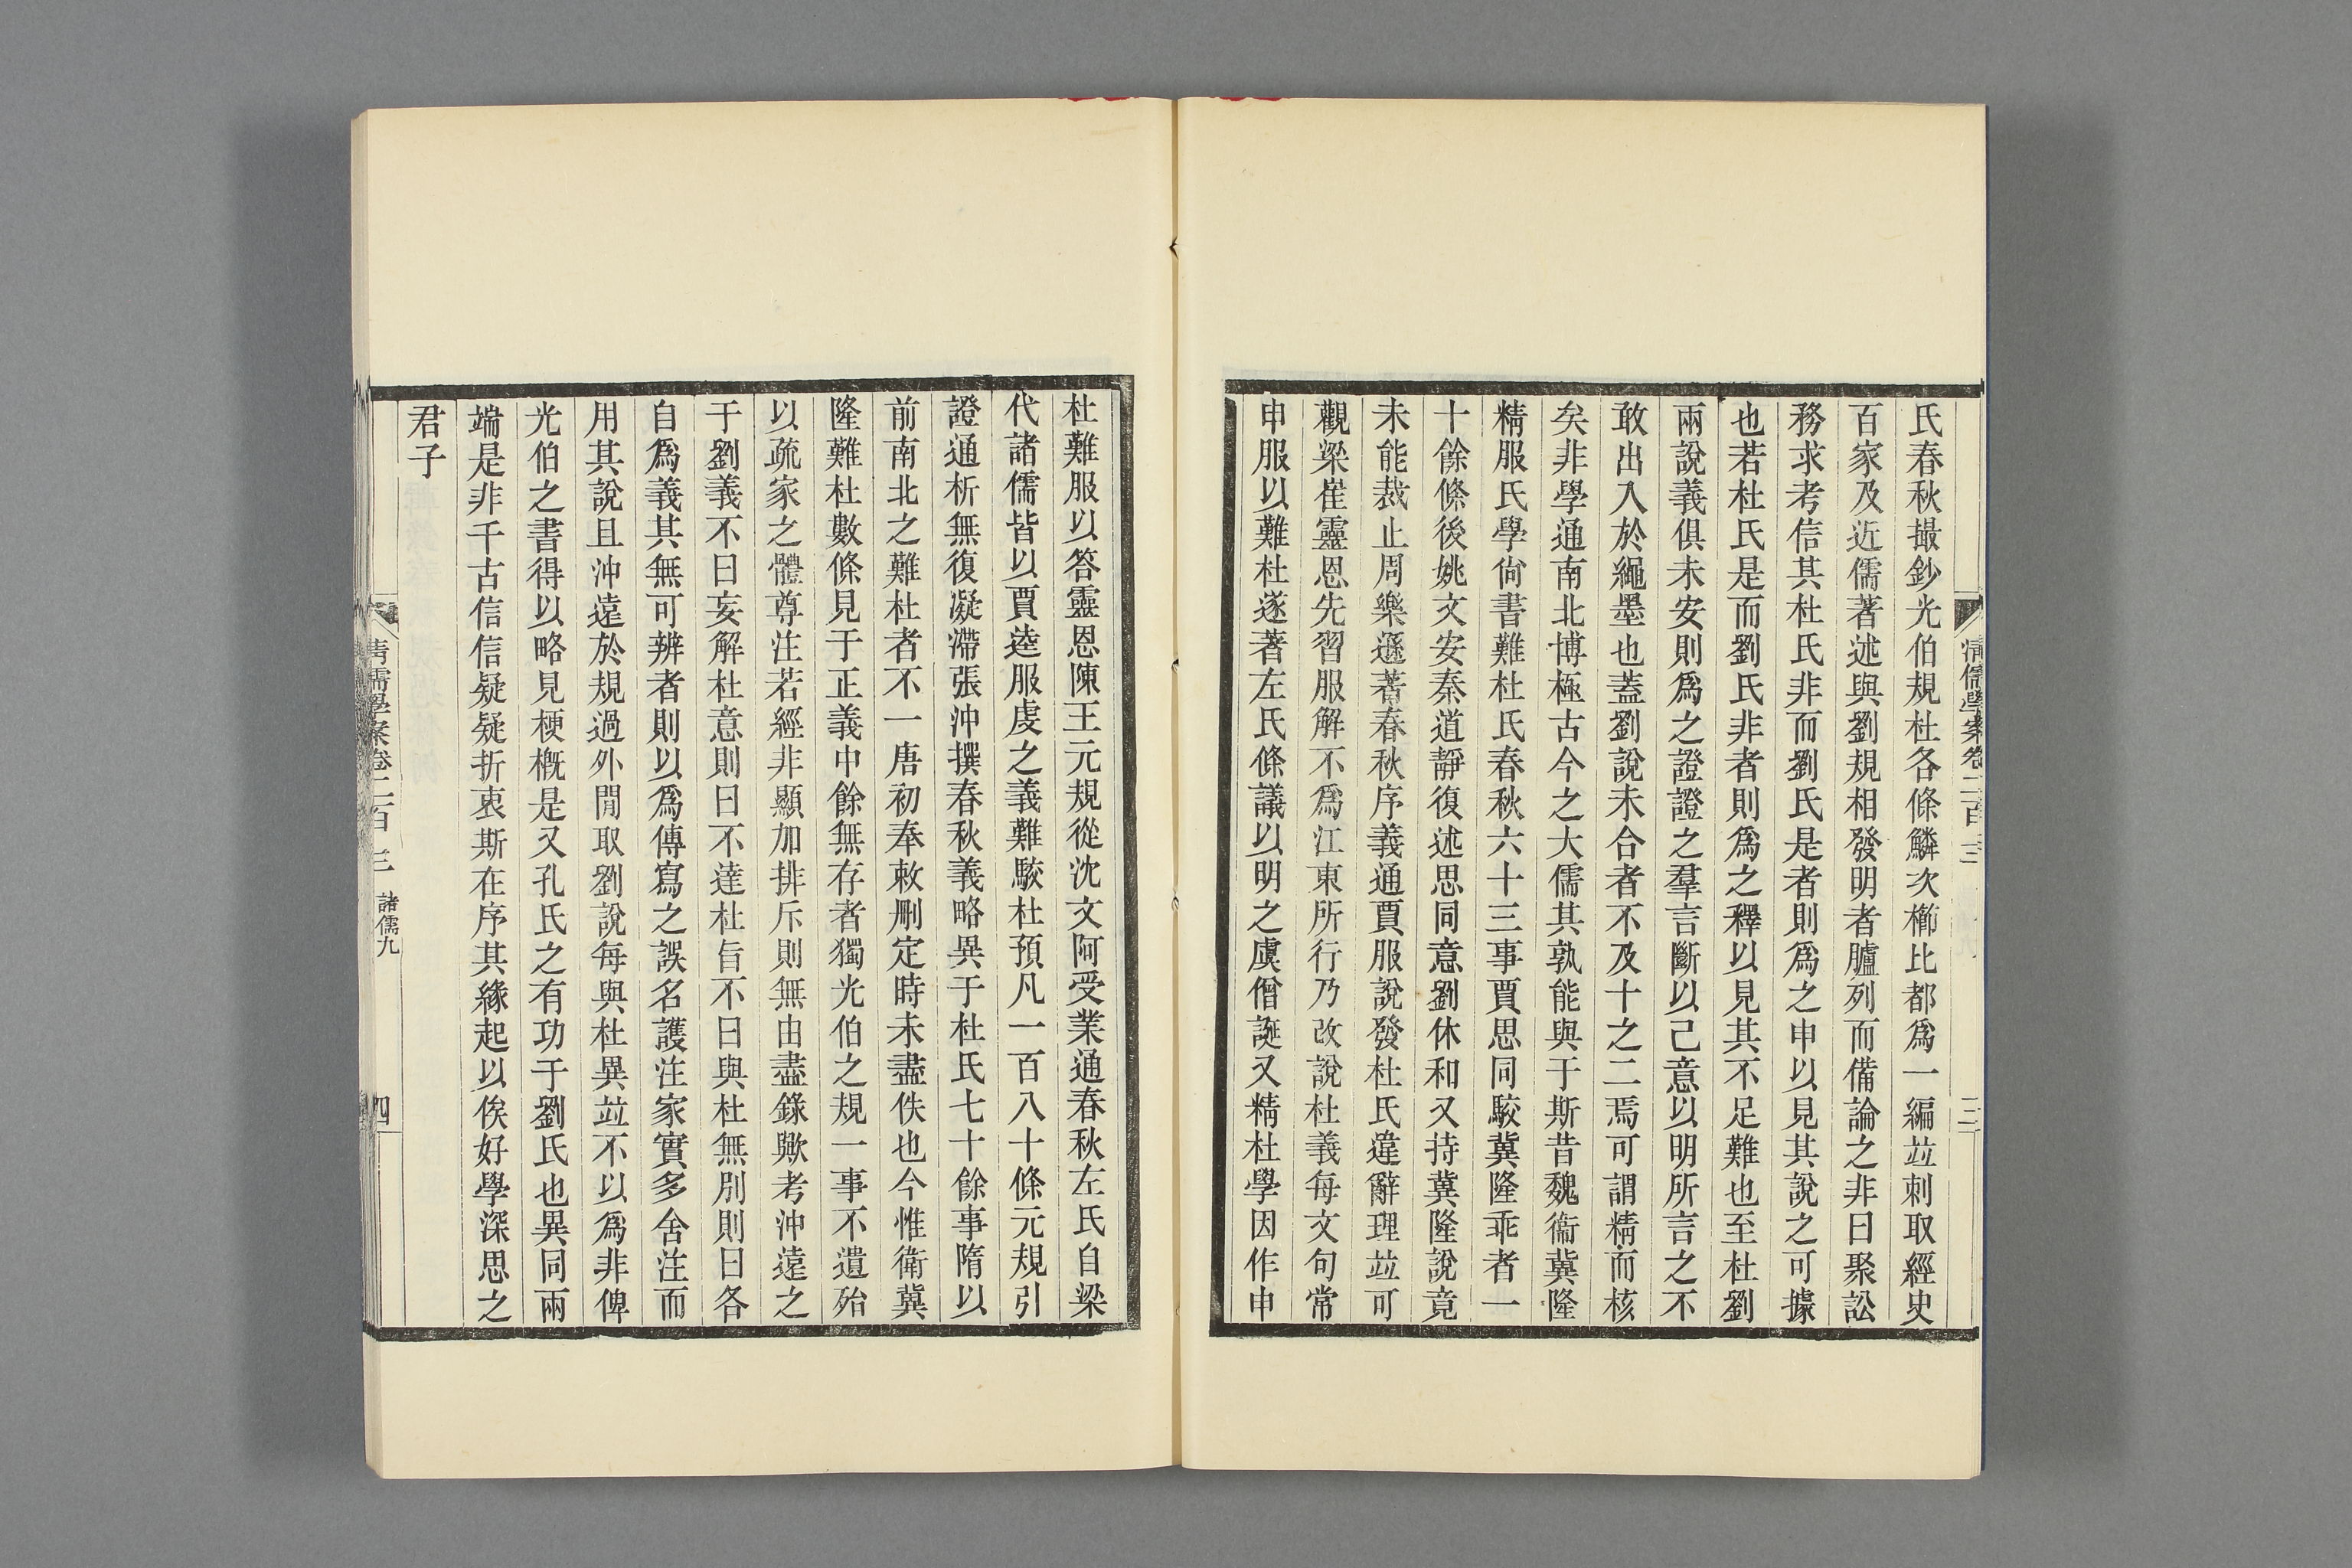 清儒學案卷二百三
三
氏春秋撮鈔光伯規杜各條鱗次櫛比都爲一編竝刺取經史
百家及近儒著述與劉規相發明者臚列而備論之非曰聚訟
務求考信其杜氏非而劉氏是者則爲之申以見其說之可據
也若杜氏是而劉氏非者則爲之釋以見其不足難也至杜劉
兩說義俱未安則爲之證證之羣言斷以己意以明所言之不
敢出入於繩墨也蓋劉說未合者不及十之二焉可謂精而核
矣非學通南北博極古今之大儒其孰能與于斯昔魏衞冀隆
精服氏學尙書難杜氏春秋六十三事賈思同駮冀隆乖者一
十餘條後姚文安秦道靜復述思同意劉休和又持冀隆說竟
未能裁止周樂遜著春秋序義通賈服說發杜氏違辭理竝可
觀梁崔靈恩先習服解不爲江東所行乃改說杜義每文句常
申服以難杜遂著左氏條議以明之虞僧誕又精杜學因作申
杜難服以答靈恩陳王元規從沈文阿受業通春秋左氏自梁
代諸儒皆以賈逵服虔之義難駮杜預凡一百八十條元規引
證通析無復凝滯張沖撰春秋義略異于杜氏七十餘事隋以
前南北之難杜者不一唐初奉敕刪定時未盡佚也今惟衛冀
隆難杜數條見于正義中餘無存者獨光伯之規一事不遺殆
以疏家之體尊注若經非顯加排斥則無由盡錄歟考沖遠之
于劉義不曰妄解杜意則曰不達杜旨不曰與杜無別則曰各
自爲義其無可辨者則以爲傳寫之誤名護注家實多舍注而
用其說且沖遠於規過外閒取劉說每與杜異竝不以爲非俾
光伯之書得以略見梗槪是又孔氏之有功于劉氏也異同兩
端是非千古信信疑疑折衷斯在序其緣起以俟好學深思之
君子
清儒學案卷二百三 諸儒九
四